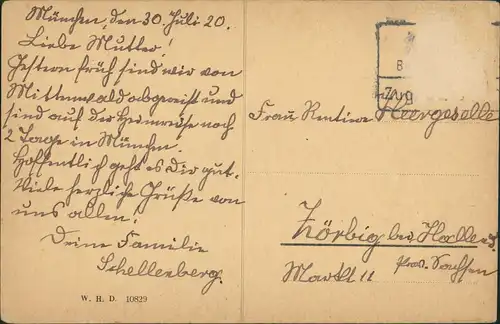 München, den 30. Juli 20.
Liebe Mutter!
Gestern früh sind wir von
Mittenwald abgereist und
sind auf der Heimreise noch
2 Tage in München.
Hoffentlich geht es Dir gut.
Viele herzliche Grüße von
uns allen!
Deine Familie
Schellenberg.
W. H. D. 10829
8
Frau Rentiere
Zörbig bei Halle S.
Markt 11 Prov. Sachsen